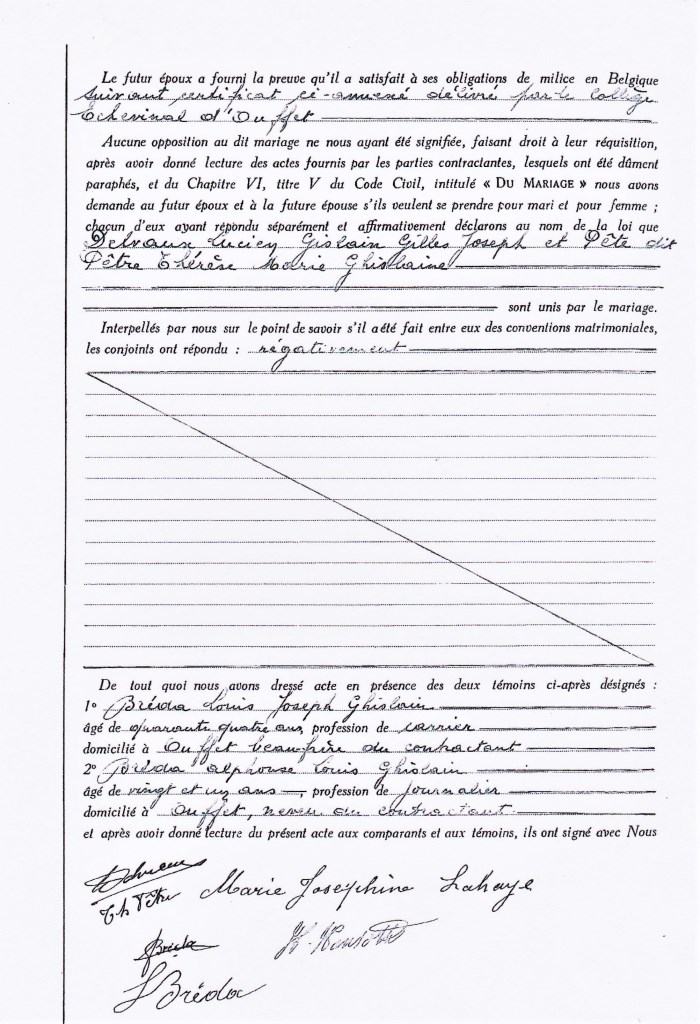 Le futur époux a fourni la preuve qu'il a satisfait à ses obligations de milice en Belgique
suivant certificat ci-annexé délivré par le Collège
Echevinal d'Ouffet
Aucune opposition au dit mariage ne nous ayant été signifiée, faisant droit à leur réquisition,
après avoir donné lecture des actes fournis par les parties contractantes, lesquels ont été dûment
paraphés, et du Chapitre VI, titre V du Code Civil, intitulé « DU MARIAGE » nous avons
demande au futur époux et à la future épouse s'ils veulent se prendre pour mari et pour femme ;
chacun d'eux ayant répondu séparément et affirmativement déclarons au nom de la loi que
Delvaux Lucien Gislain Gilles Joseph et Pête dit
Pêtre Thérèse Marie Ghislaine
sont unis par le mariage.
Interpellés par nous sur le point de savoir s'il a été fait entre eux des conventions matrimoniales,
les conjoints ont répondu : négativement
De tout quoi nous avons dressé acte en présence des deux témoins ci-après désignés :
1° Bréda Louis Joseph Ghislain
âgé de quarante quatre ans, profession de carrier
domicilié à Ouffet beau-frère du contractant
2° Bréda Alphonse Louis Ghislain
âgé de vingt et un ans, profession de journalier
domicilié à Ouffet, neveu du contractant
et après avoir donné lecture du présent acte aux comparants et aux témoins, ils ont signé avec Nous
Th Pêtre Marie Josephine Lahaye
Bréda
L Bréda